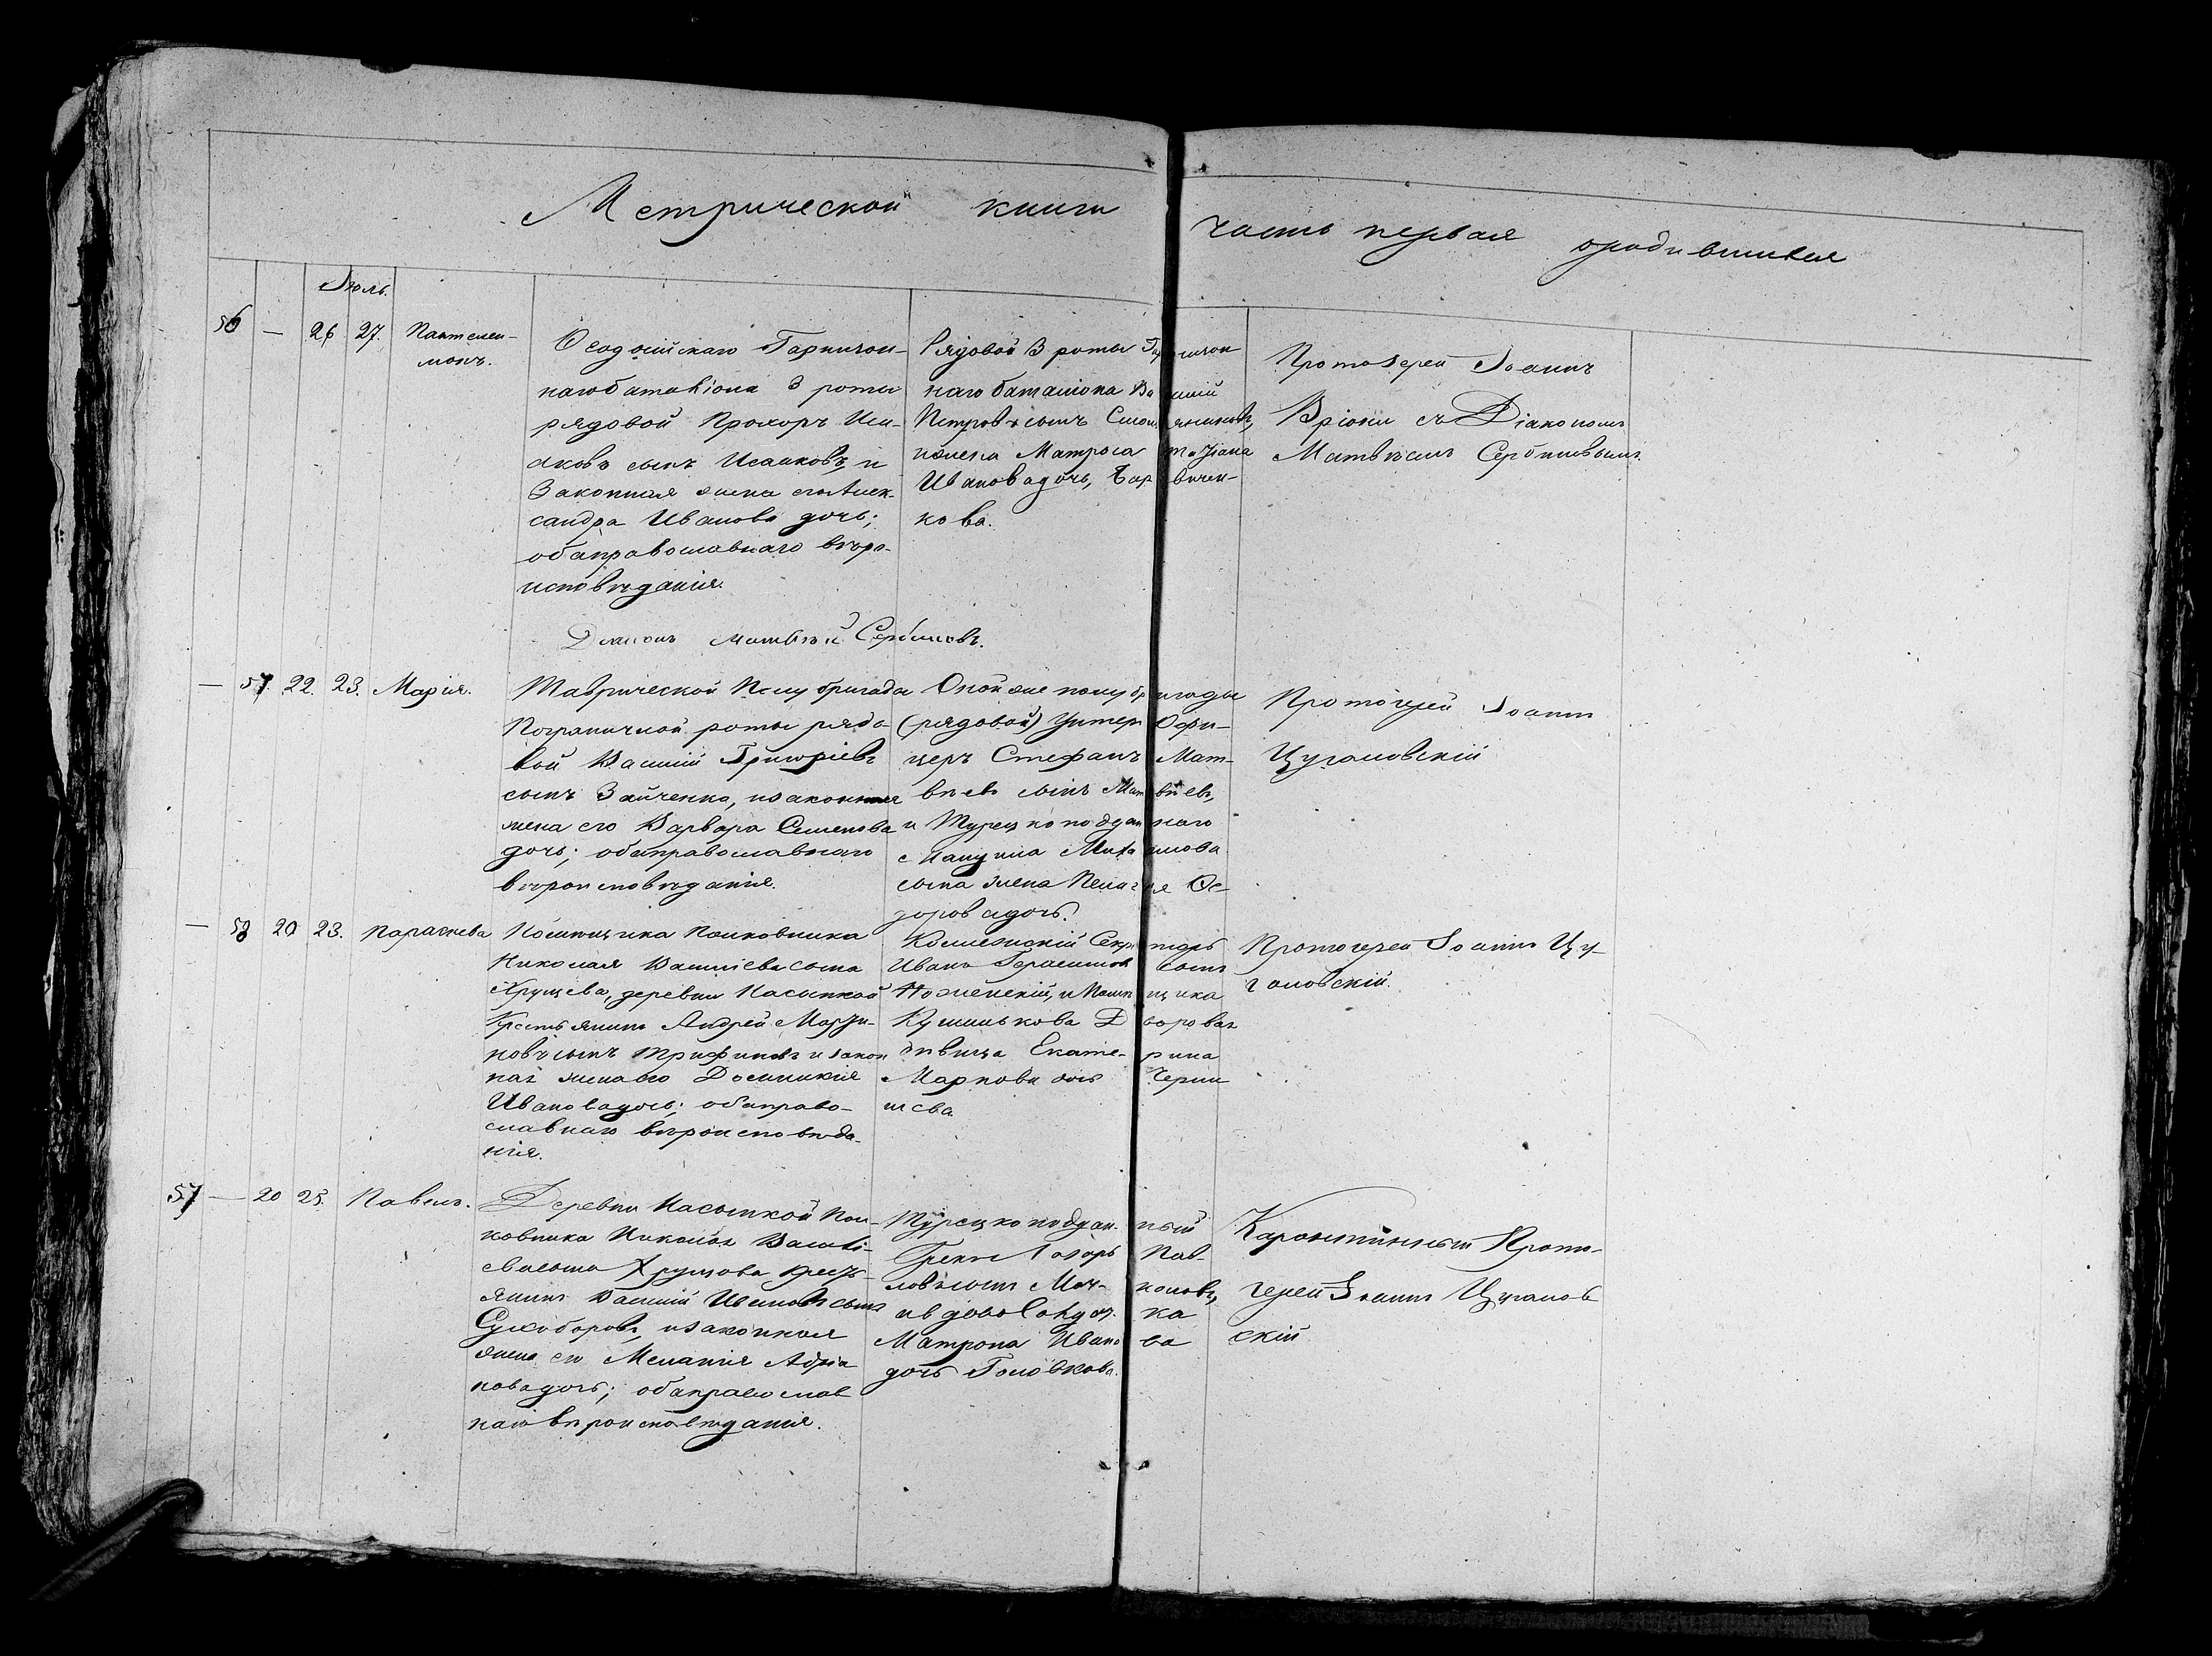 Метрической книги часть первая о родившихся
Іюль.
56 — 26 27. Пантелей-
монъ.
Ѳеодосійскаго Гарнизон-
наго баталіона 3 роты
рядовой Прохоръ Иса-
аковъ сынъ Исааковъ и
законная жена его Алек-
сандра Иванова дочь;
оба православнаго вѣро-
исповѣданія.
Рядовой 3 роты Гарнизон
наго баталіона Василій
Петровъ сынъ
жена Матроса Татіана
Иванова дочь,
кова.
Протоіерей Іоаннъ
Вріони съ Діакономъ
Матвѣемъ Сербиновымъ.
Діаконъ Матвѣй Сербиновъ.
— 57. 22. 23. Марія.
Таврической Полубригады
Пограничной роты рядо-
вой Василій Григоріевъ
сынъ Зайченко, и законная
жена его Варвара Семенова
дочь; оба православнаго
вѣроисповѣданія.
Оной же полубригады
(рядовой) Унтеръ Офи-
церъ Стефанъ Мат-
вѣевъ сынъ Матвѣевъ,
и Турецкоподданнаго
Михайлова
сына жена Пелагія Ѳе-
дорова дочь.
Протоіерей Іоаннъ
Цугановскій
— 58 20 23. Параскева
Помѣщика Полковника
Николая Василіева сына
Хрущева, деревни Насыпкой
Крестьянинъ Андрей Марти-
новъ сынъ Трифоновъ и закон
ная жена его Домникія
Иванова дочь; оба право-
славнаго вѣроисповѣда-
нія.
Коллежскій Секретарь
Иванъ Герасимовъ сынъ
и Помѣщика
Дворовая
дѣвица Екате-рина
Маркова дочь Черни
шева
Протоіерей Іоаннъ Цу-
гановскій.
57 — 20 25. Павелъ.
Деревни Насыпкой Пол-
ковника Николая Василі-
ева сына Хрущова Кресть-
янинъ Василій Ивановъ сынъ
Сухоборовъ, и законная
жена его Меланія Адріа
нова дочь; оба православ
наго вѣроисповѣданія.
Турецкоподданный
Грекъ Лазарь Пав-
ловъ сынъ
и вдова
Матрона Иванова
дочь Головкова.
Карантинный Прото-
іерей Іоаннъ Цуганов
скій